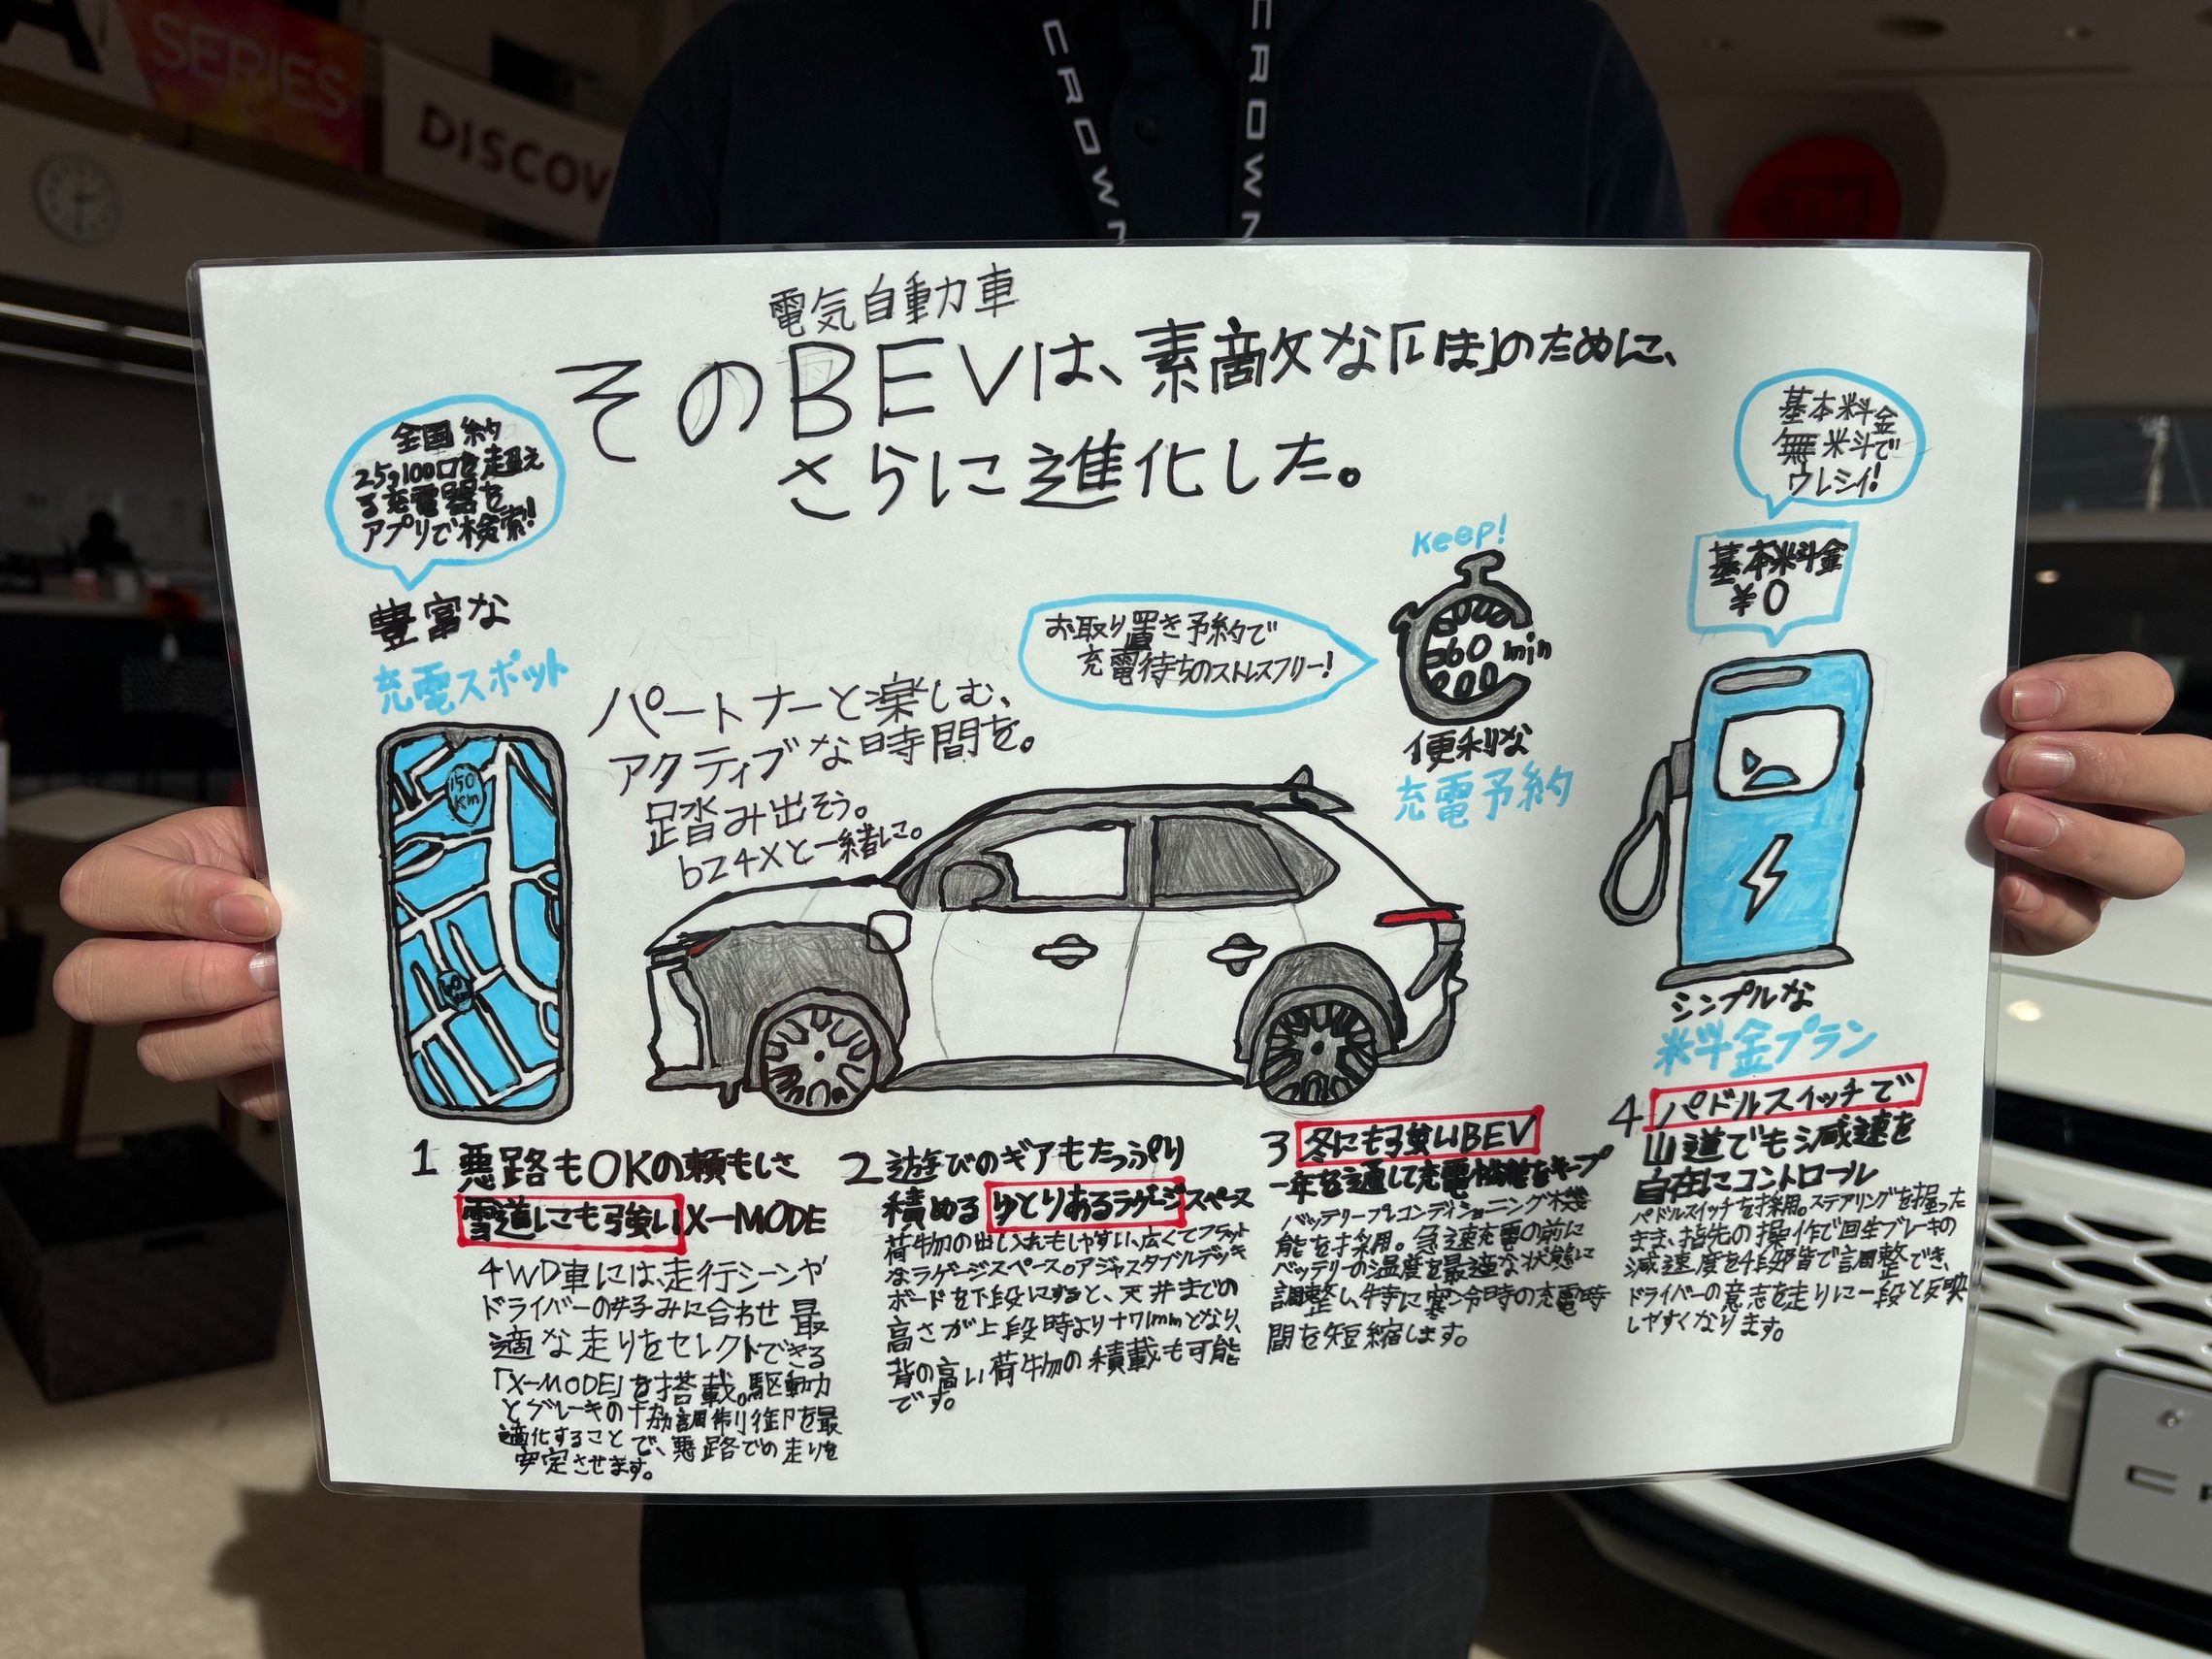 SERIES
DISCOV
CROWN
CROWN
電気自動車
そのBEVは、素敵な「いま」のために、
さらに進化した。
全国約
25,100口を超え
る充電器を
アプリで検索!
豊富な
充電スポット
150
km
パートナーと楽しむ、
アクティブな時間を。
踏み出そう。
bZ4Xと一緒に。
お取り置き予約で
充電待ちのストレスフリー!
Keep!
60 min
便利な
充電予約
基本料金
無料で
ウレシイ!
基本料金
¥0
シンプルな
料金プラン
1 悪路もOKの頼もしさ
雪道にも強いX-MODE
4WD車には、走行シーンや
ドライバーの好みに合わせ最
適な走りをセレクトできる
「X-MODE」を搭載。駆動力
とブレーキの協調制御を最
適化することで、悪路での走りを
安定させます。
2 遊びのギアもたっぷり
積めるゆとりあるラゲージスペース
荷物の出し入れもしやすい、広くてフラット
なラゲージスペース。アジャスタブルデッキ
ボードを下段にすると、天井までの
高さが上段時より+71mmとなり、
背の高い荷物の積載も可能
です。
3 冬にも強いBEV
一年を通して充電性能をキープ
バッテリープレコンディショニング機
能を採用。急速充電の前に
バッテリーの温度を最適な状態に
調整し、特に寒冷時の充電時
間を短縮します。
4 パドルスイッチで
山道でも減速を
自在にコントロール
パドルスイッチを採用。ステアリングを握った
まま、指先の操作で回生ブレーキの
減速度を4段階で調整でき、
ドライバーの意志を走りに一段と反映
しやすくなります。